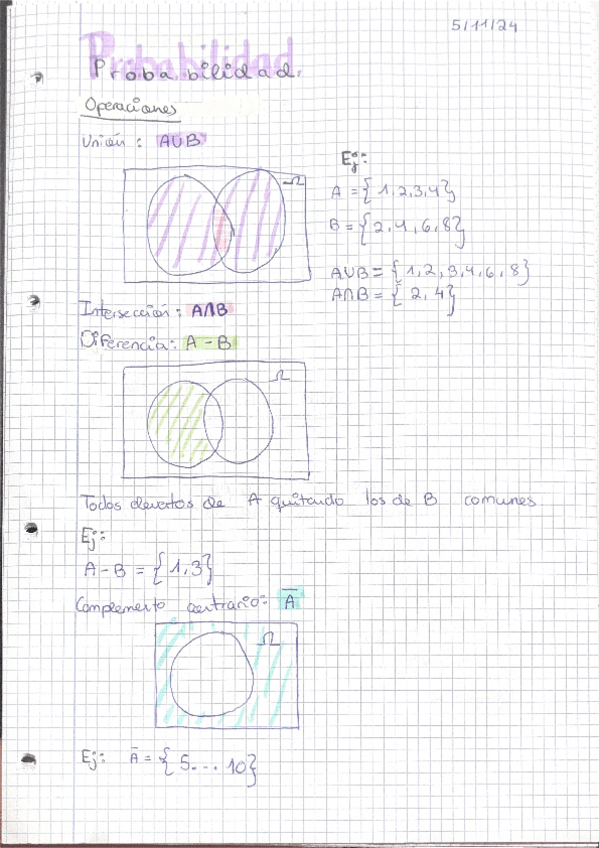 5/11/24
Probabilidad
Probabilidad.
Operaciones
Unión: A∪B
Ω
Ej:
A = {1,2,3,4}
B = {2,4,6,8}
A∪B = {1,2,3,4,6,8}
A∩B = {2,4}
Intersección: A∩B
Diferencia: A - B
Ω
Todos elementos de A quitando los de B comunes
Ej:
A - B = {1,3}
Complemento contrario: A̅
Ω
Ej: A̅ = {5... 10}